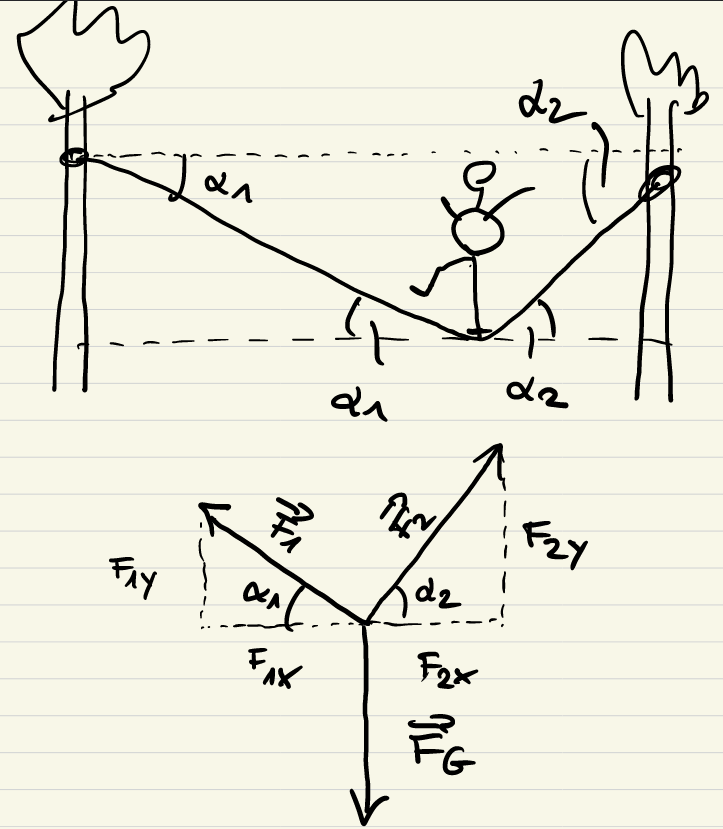 α2
α1
α1
α2
F1
F2
F2Y
F1Y
α1
α2
F1X
F2X
FG